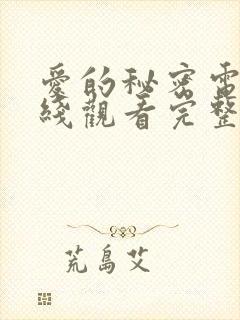 愛的秘密電
綫觀看完整
荒島艾